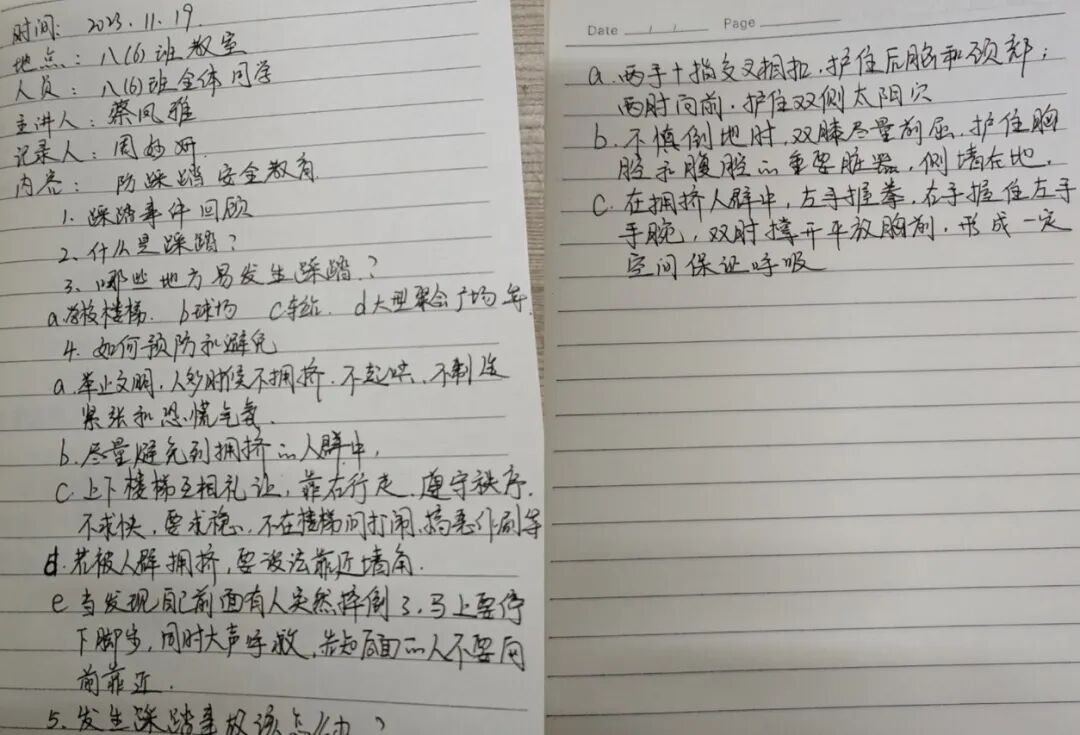 时间: 2023.11.19
地点: 八(6)班教室
人员: 八(6)班全体同学
主讲人: 蔡凤雅
记录人: 周妙妍
内容: 防踩踏安全教育
1. 踩踏事件回顾
2. 什么是踩踏?
3. 哪些地方易发生踩踏?
a.学校楼梯. b球场 c车站. d大型聚会广场等.
4. 如何预防和避免
a.举止文明,人多时候不拥挤.不起哄.不制造
紧张和恐慌气氛.
b.尽量避免到拥挤的人群中,
c.上下楼梯互相礼让,靠右行走.遵守秩序.
不求快,要求稳.不在楼梯间打闹.搞恶作剧等
d.若被人群拥挤,要设法靠近墙角.
e 当发现自己前面有人突然摔倒了,马上要停
下脚步,同时大声呼救,告知后面的人不要向
前靠近.
5.发生踩踏事故该怎么办?
Date / / Page
a.两手十指交叉相扣.护住后脑和颈部;
两肘向前.护住双侧太阳穴
b.不慎倒地时,双膝尽量前屈.护住胸
腔和腹腔的重要脏器,侧墙在地.
c.在拥挤人群中,左手握拳.右手握住左手
手腕,双肘撑开平放胸前.形成一定
空间保证呼吸